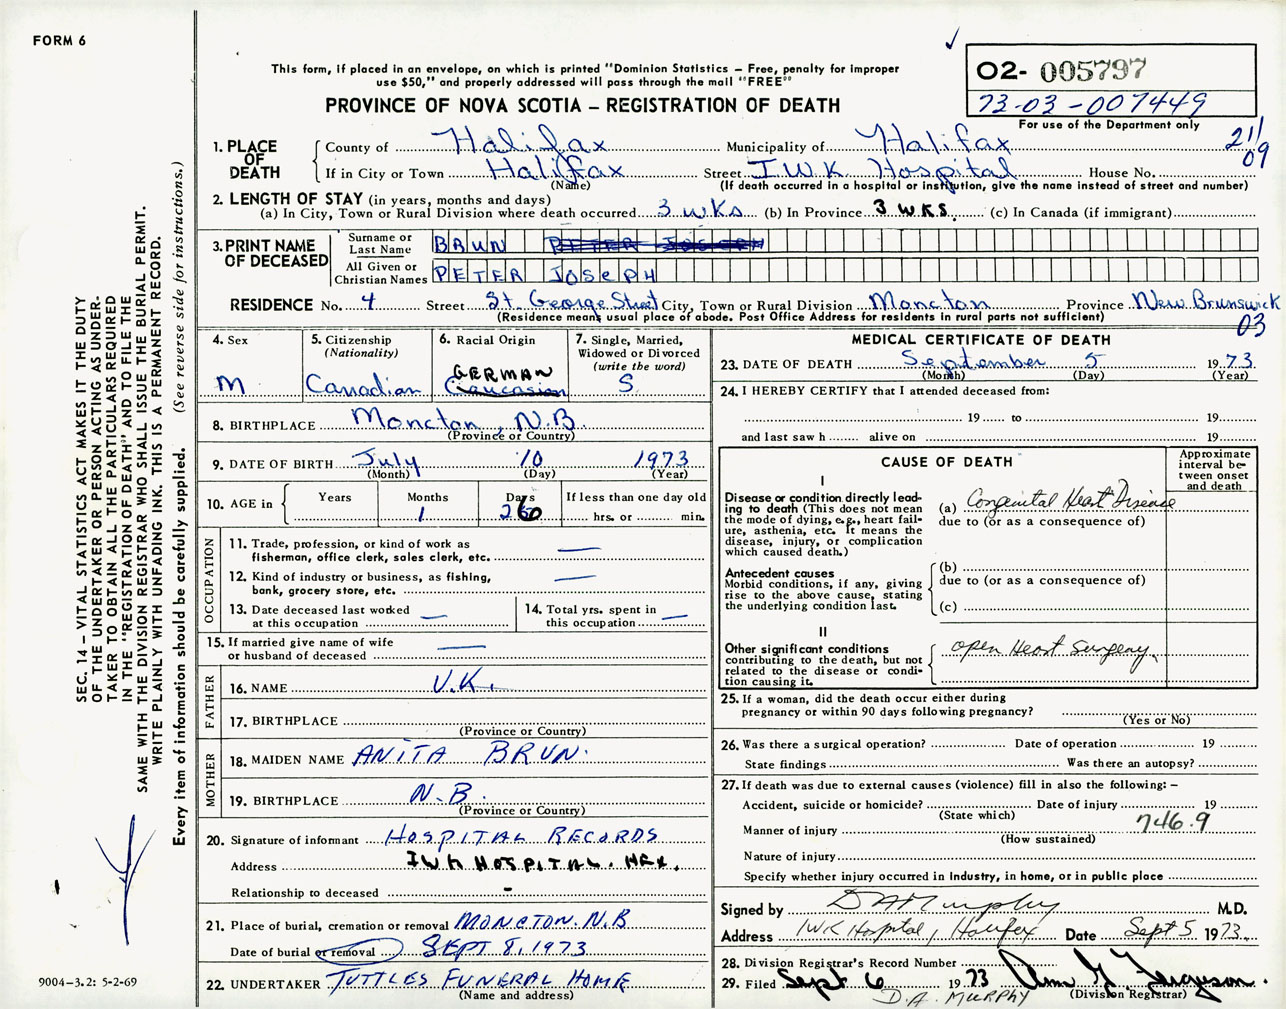 FORM 6
This form, if placed in an envelope, on which is printed "Dominion Statistics – Free, penalty for improper
use $50," and properly addressed will pass through the mail "FREE"
PROVINCE OF NOVA SCOTIA – REGISTRATION OF DEATH
✓
02- 005797
73-03-007449
For use of the Department only
211
09
1. PLACE OF DEATH
County of Halifax Municipality of Halifax
If in City or Town Halifax Street I.W.K Hospital House No.
(Name) (If death occurred in a hospital or institution, give the name instead of street and number)
2. LENGTH OF STAY (in years, months and days)
(a) In City, Town or Rural Division where death occurred 3 wks (b) In Province 3 WKS. (c) In Canada (if immigrant)
3. PRINT NAME OF DECEASED
Surname or Last Name BRUN PETER JOSEPH
All Given or Christian Names PETER JOSEPH
RESIDENCE No. 4 Street St. George Street City, Town or Rural Division Moncton Province New Brunswick
(Residence means usual place of abode. Post Office Address for residents in rural parts not sufficient)
03
4. Sex
M
5. Citizenship
(Nationality)
Canadian
6. Racial Origin
GERMAN
Caucasian
7. Single, Married,
Widowed or Divorced
(write the word)
S
8. BIRTHPLACE Moncton, N.B.
(Province or Country)
9. DATE OF BIRTH July 10 1973
(Month) (Day) (Year)
10. AGE in
Years Months Days If less than one day old
1 26 hrs. or min.
OCCUPATION
11. Trade, profession, or kind of work as
fisherman, office clerk, sales clerk, etc. —
12. Kind of industry or business, as fishing,
bank, grocery store, etc. —
13. Date deceased last worked
at this occupation —
14. Total yrs. spent in
this occupation —
15. If married give name of wife
or husband of deceased —
FATHER
16. NAME U.K.
17. BIRTHPLACE
(Province or Country)
MOTHER
18. MAIDEN NAME ANITA BRUN.
19. BIRTHPLACE N.B.
(Province or Country)
20. Signature of informant HOSPITAL RECORDS
Address IWK HOSPITAL. HFX.
Relationship to deceased -
21. Place of burial, cremation or removal MONCTON. N.B
Date of burial or removal SEPT 8, 1973
22. UNDERTAKER TUTTLES FUNERAL HOME
(Name and address)
MEDICAL CERTIFICATE OF DEATH
23. DATE OF DEATH September 5 1973
(Month) (Day) (Year)
24. I HEREBY CERTIFY that I attended deceased from:
19 to 19
and last saw h alive on 19
CAUSE OF DEATH
Approximate
interval be-
tween onset
and death
I
Disease or condition directly lead-
ing to death (This does not
mean the mode of dying, e.g., heart fail-
ure, asthenia, etc. It means the
disease, injury, or complication
which caused death.)
(a) Congenital Heart Disease
due to (or as a consequence of)
Antecedent causes
Morbid conditions, if any, giving
rise to the above cause, stating
the underlying condition last.
(b)
due to (or as a consequence of)
(c)
II
Other significant conditions
contributing to the death, but not
related to the disease or condi-
tion causing it.
open Heart Surgery.
25. If a woman, did the death occur either during
pregnancy or within 90 days following pregnancy?
(Yes or No)
26. Was there a surgical operation? Date of operation 19
State findings Was there an autopsy?
27. If death was due to external causes (violence) fill in also the following: –
Accident, suicide or homicide? Date of injury 19
(State which)
746.9
Manner of injury
(How sustained)
Nature of injury
Specify whether injury occurred in industry, in home, or in public place
Signed by D A Murphy M.D.
Address IWK Hospital, Halifax Date Sept 5 1973
28. Division Registrar's Record Number
29. Filed Sept 6 1973 Ann G. Ferguson.
D.A. MURPHY (Division Registrar)
SEC. 14 – VITAL STATISTICS ACT MAKES IT THE DUTY
OF THE UNDERTAKER OR PERSON ACTING AS UNDER-
TAKER TO OBTAIN ALL THE PARTICULARS REQUIRED
IN THE "REGISTRATION OF DEATH" AND TO FILE THE
SAME WITH THE DIVISION REGISTRAR WHO SHALL ISSUE THE BURIAL PERMIT.
WRITE PLAINLY WITH UNFADING INK. THIS IS A PERMANENT RECORD.
Every item of information should be carefully supplied. (See reverse side for instructions.)
9004-3.2: 5-2-69